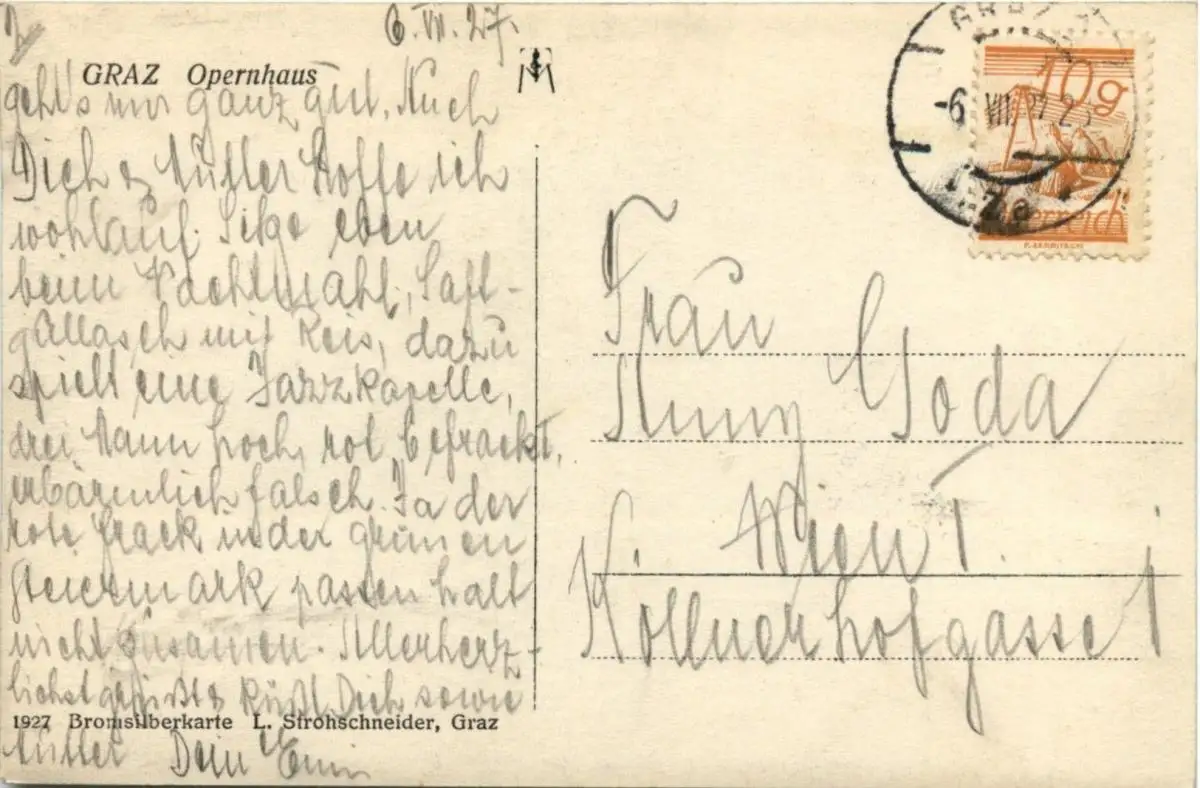 2
6. VII. 27.
GRAZ Opernhaus
geht's mir ganz gut. Auch
Dich & Mutter hoffe ich
wohlauf. Sitze eben
beim Nachtmahl, Saft-
gollasch mit Reis, dazu
spielt eine Jazzkapelle,
drei Mann hoch, rot befrackt,
erbärmlich falsch. Ja der
rote Frack in der grünen
Steiermark passen halt
nicht zusamen. Allerherz-
lichst grüßt & küßt Dich sowie
1927 Bromsilberkarte L. Strohschneider, Graz
Mutter Dein
GRAZ
-6. VII. 27. 2
10g
Österreich
Frau
Anny Goda
Wien I.
Köllnerhofgasse 1